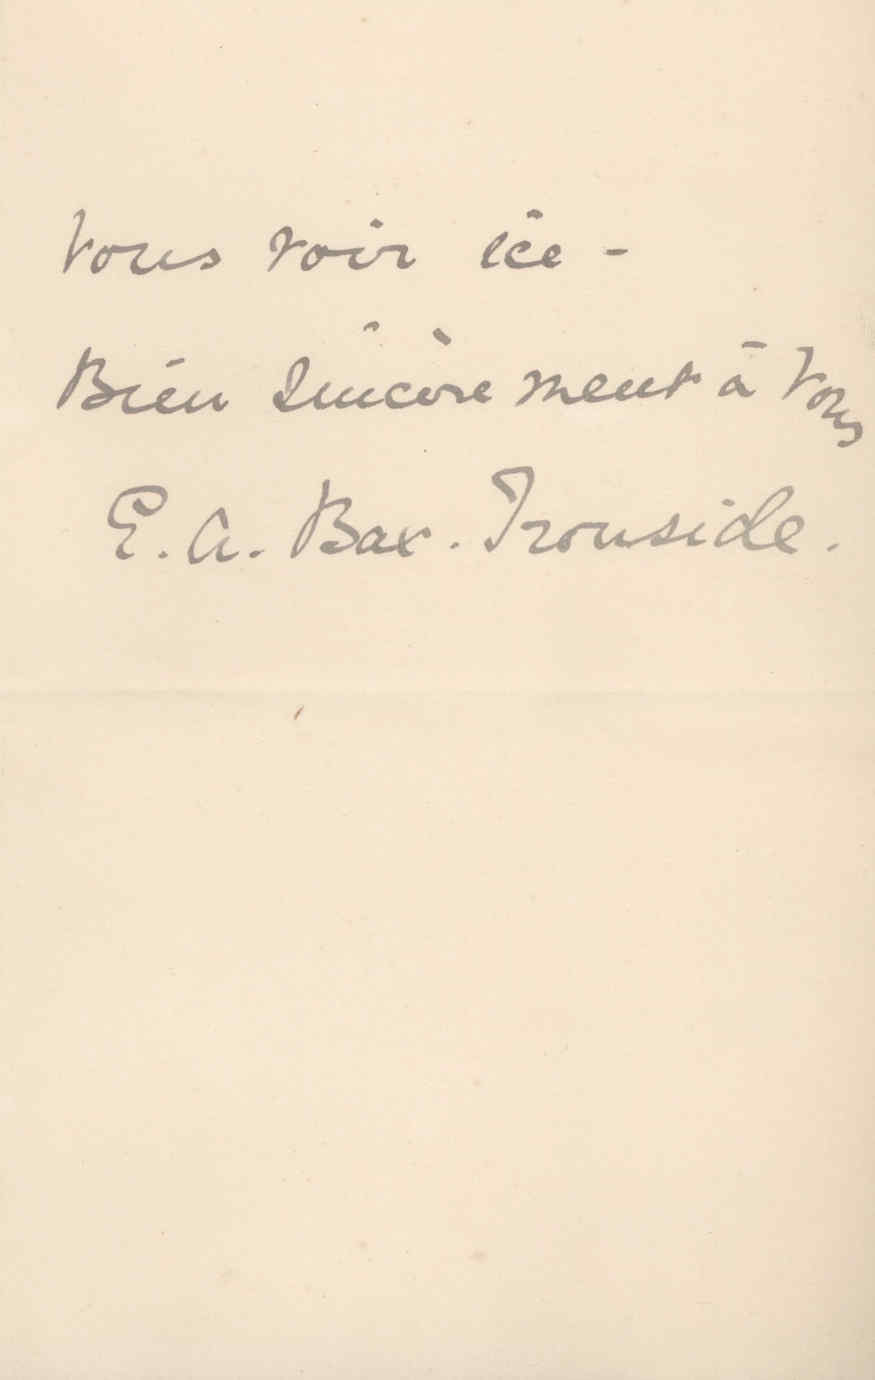 vous voir ice -
Bien sincèrement à vous
E. A. Bax. Ironside.